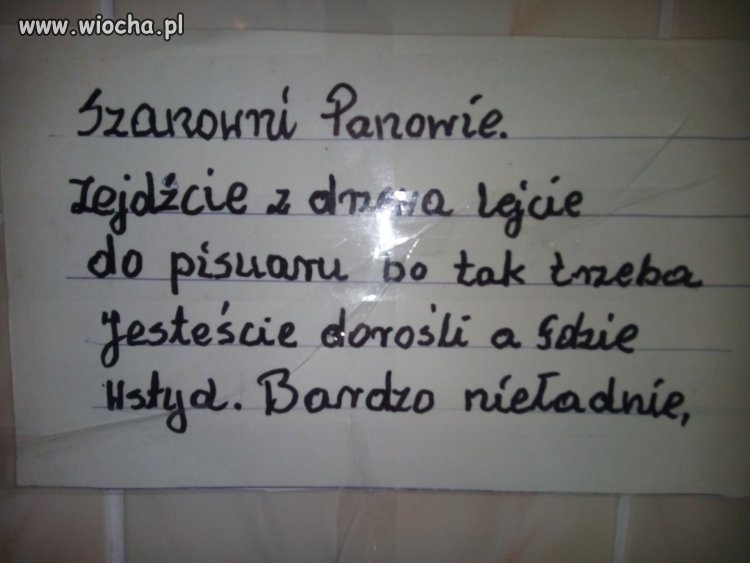 www.wiocha.pl
Szanowni Panowie.
Zejdźcie z drzewa lejcie
do pisuaru bo tak trzeba
Jesteście dorośli a gdzie
Wstyd. Bardzo nieładnie,